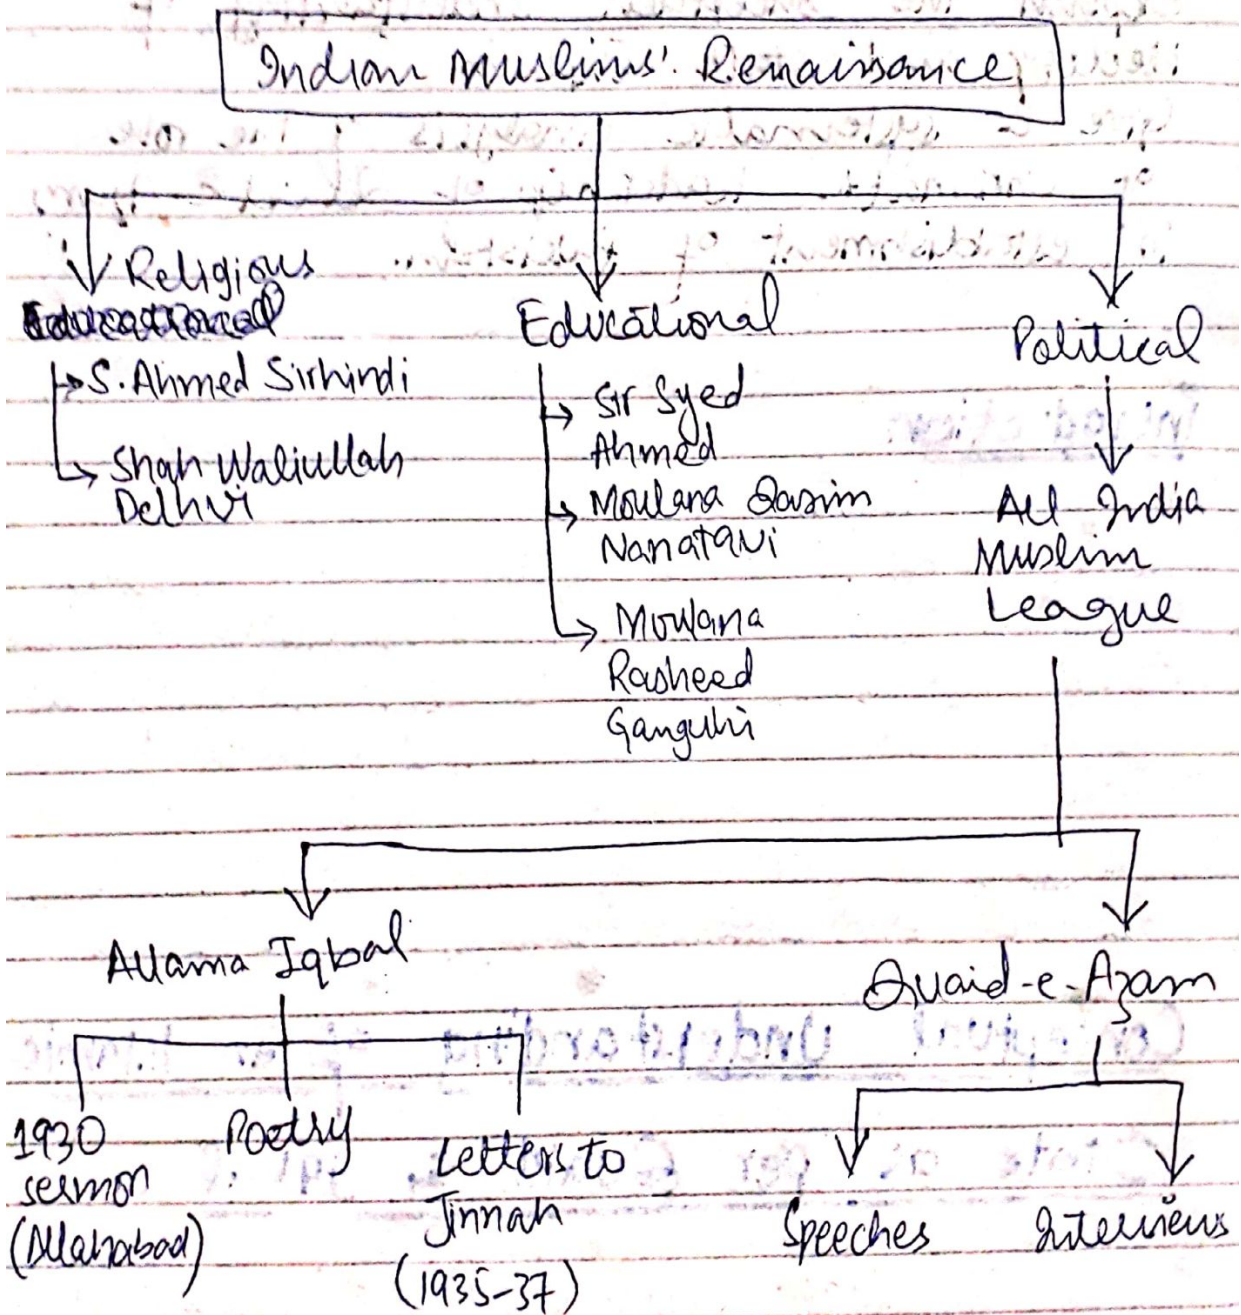 Indian Muslims' Renaissance
Religious
S. Ahmed Sirhindi
Shah Waliullah
Delhvi
Educational
Sir Syed
Ahmed
Moulana Qasim
Nanatavi
Moulana
Rasheed
Ganguhi
Political
All India
Muslim
League
Allama Iqbal
1930
sermon
(Allahabad)
Poetry
Letters to
Jinnah
(1935-37)
Quaid-e-Azam
Speeches
Interviews